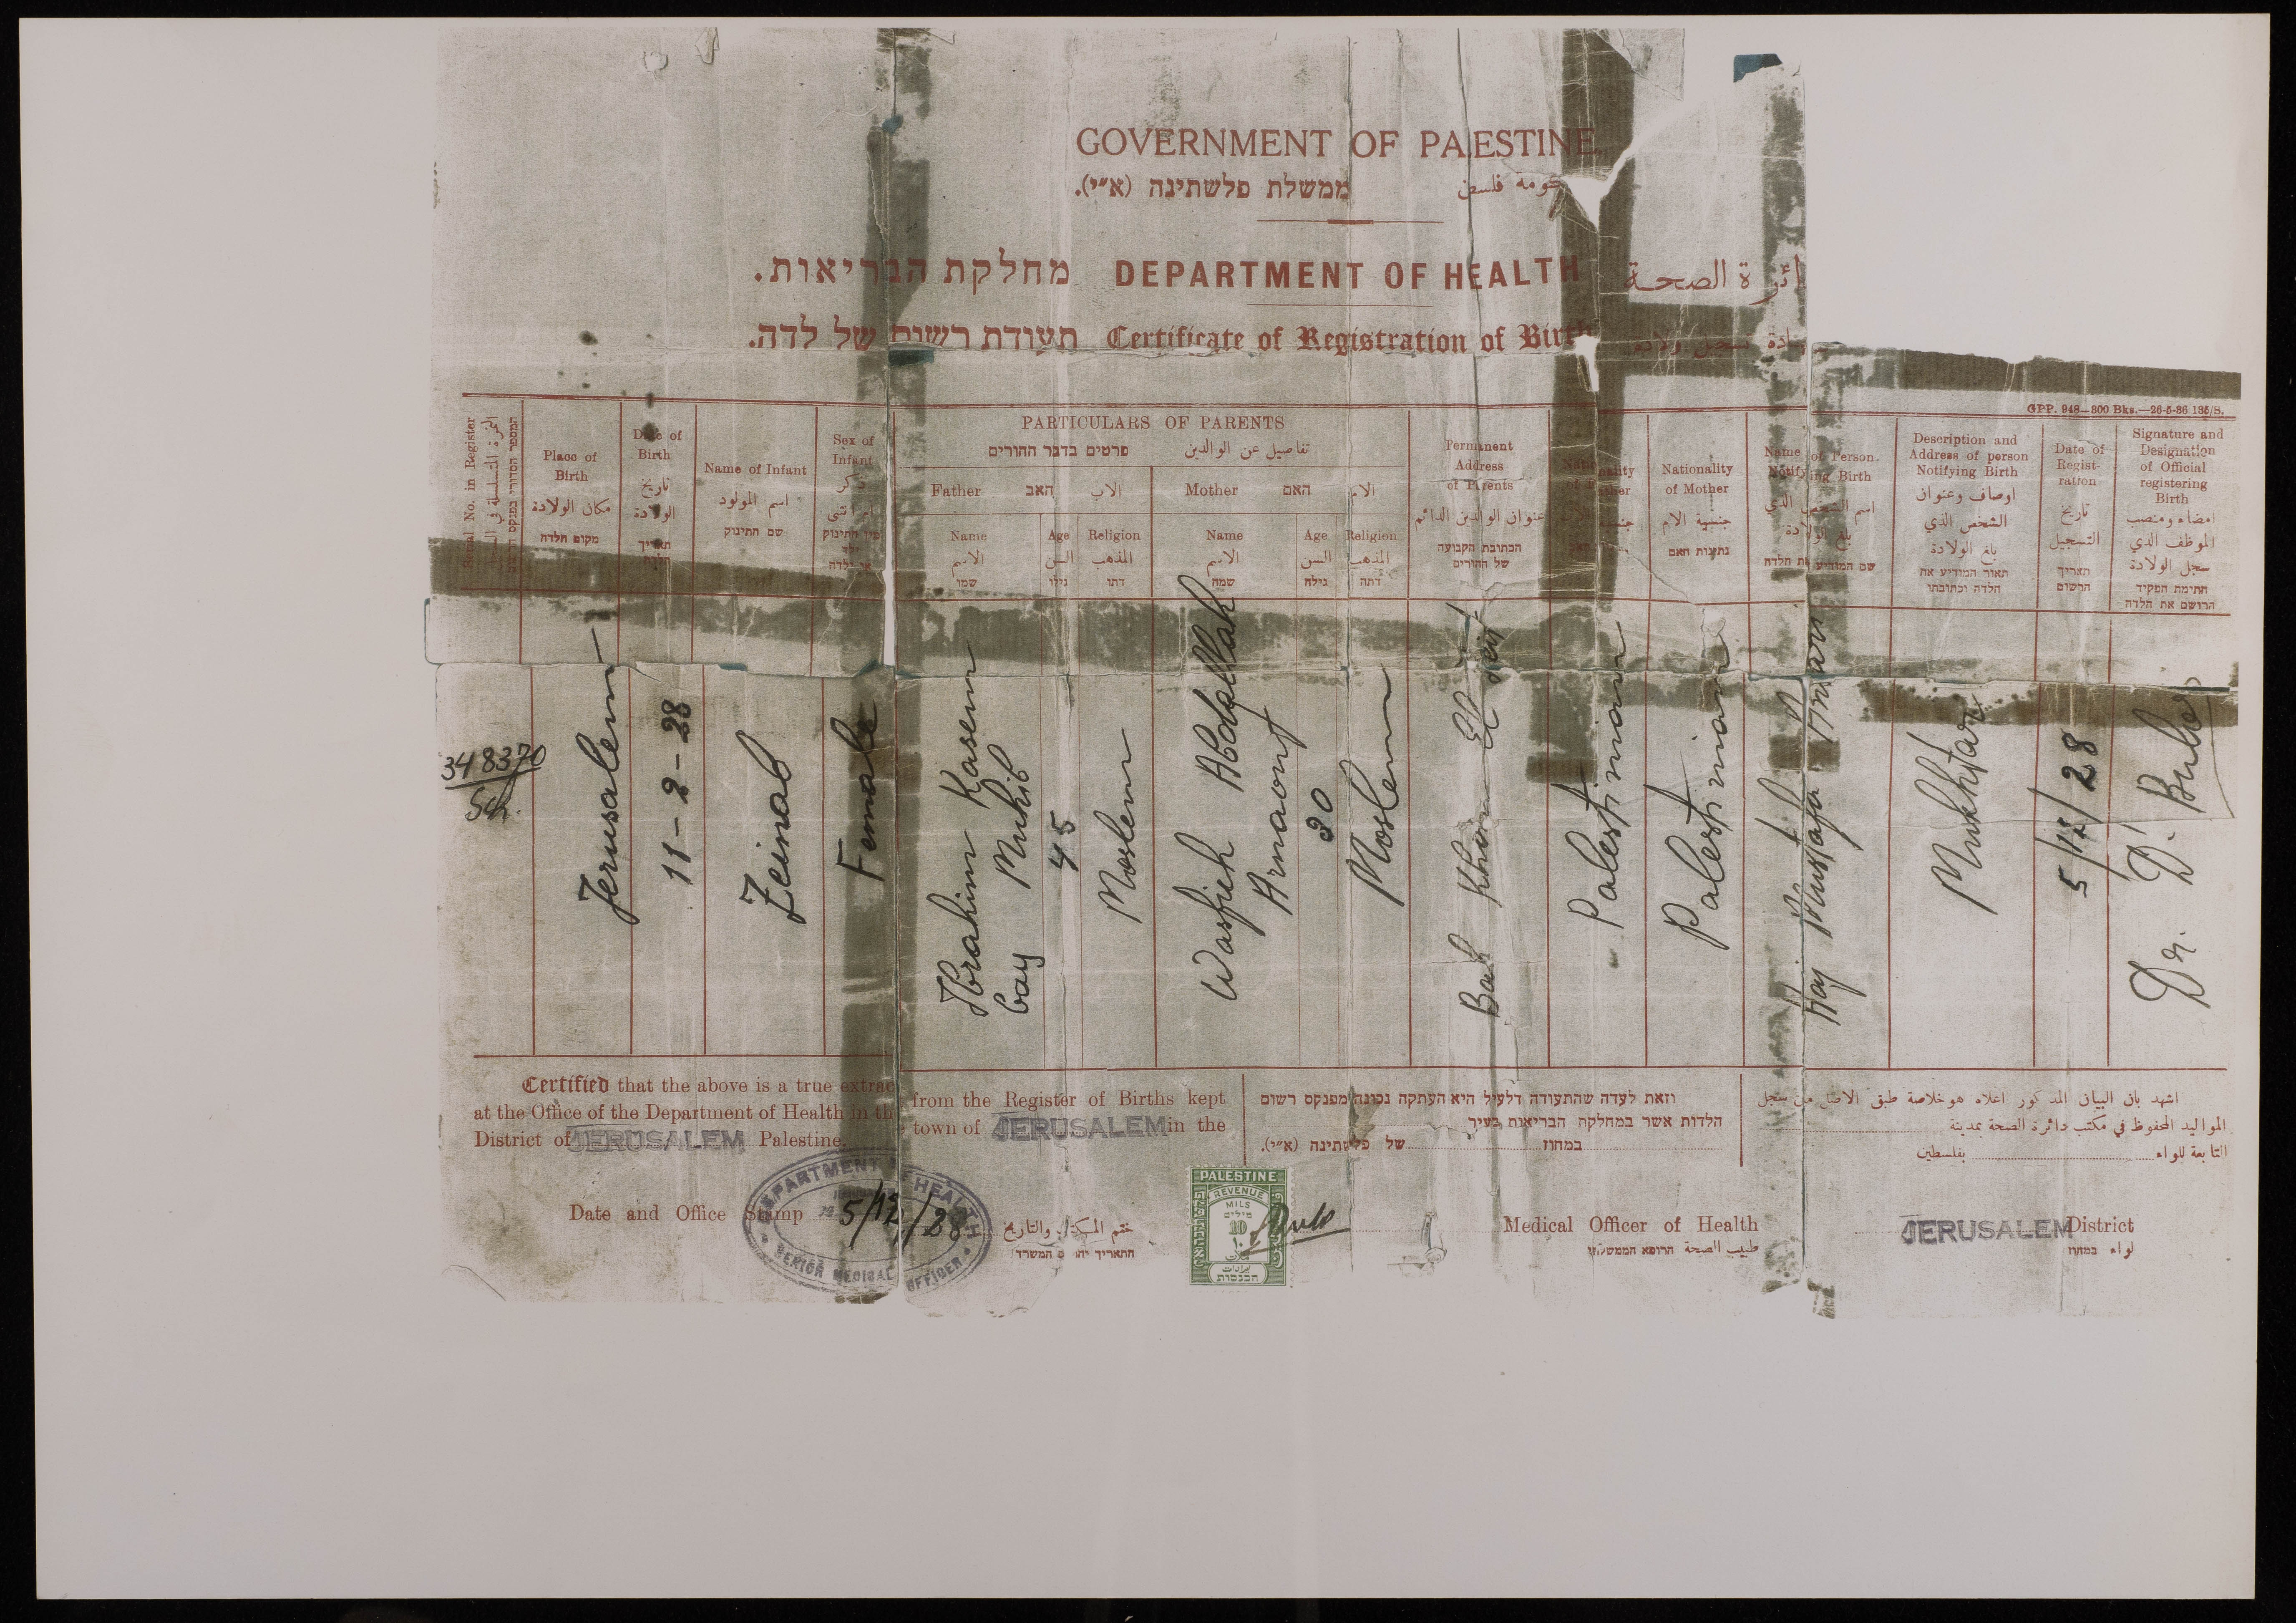 GOVERNMENT OF PALESTINE.
ממשלת פלשתינה (א״י).
DEPARTMENT OF HEALTH
מחלקת הבריאות.
الصحة
Certificate of Registration of Birth
תעודת רשום של לדה.
GPP. 948—800 Bks.—26-5-36 135/S.
Serial No. in Register
Place of Birth
مكان الولادة
מקום הלדה
Date of Birth
تاريخ الولادة
תאריך הלדה
Name of Infant
اسم المولود
שם התינוק
Sex of Infant
ذكر ام انثى
מין התינוק
PARTICULARS OF PARENTS
פרטים בדבר ההורים
تفاصيل عن الوالدين
Father האב الاب
Name Age Religion
الاسم السن المذهب
שמו גילו דתו
Mother האם الام
Name Age Religion
الاسم السن المذهب
שמה גילה דתה
Permanent Address of Parents
عنوان الوالدين الدائم
הכתובת הקבועה של ההורים
Nationality of Father
Nationality of Mother
جنسية الام
נתינות האם
Name of Person Notifying Birth
اسم الشخص الذي بلغ الولادة
שם המודיע את הלדה
Description and Address of person Notifying Birth
اوصاف وعنوان الشخص الذي بلغ الولادة
תאור המודיע את הלדה וכתובתו
Date of Registration
تاريخ التسجيل
תאריך הרשום
Signature and Designation of Official registering Birth
امضاء ومنصب الموظف الذي سجل الولادة
חתימת הפקיד הרושם את הלדה
348370
Sch.
Jerusalem
11-2-28
Zeinab
Female
Ibrahim Kasem
bay Muhib
45
Moslem
Wasfieh Abdallah
Arnaout
30
Moslem
Bab Khan El Zeit
Palestinian
Palestinian
Haj Mustafa
Mukhtar
5/12/28
Dr. D.
Certified that the above is a true extract from the Register of Births kept
at the Office of the Department of Health in the town of JERUSALEM in the
District of JERUSALEM Palestine.
וזאת לעדה שהתעודה דלעיל היא העתקה נכונה מפנקס רשום
הלדות אשר במחלקת הבריאות בעיר
במחוז של פלשתינה (א״י).
اشهد بان البيان المذكور اعلاه هو خلاصة طبق الاصل من سجل
المواليد المحفوظ في مكتب دائرة الصحة بمدينة
التابعة للواء بفلسطين
Date and Office Stamp 5/12/28
DEPARTMENT OF HEALTH
SENIOR MEDICAL OFFICER
PALESTINE
REVENUE
MILS
מילים
10
הכנסות
Medical Officer of Health
طبيب الصحة
JERUSALEM District
لواء במחוז